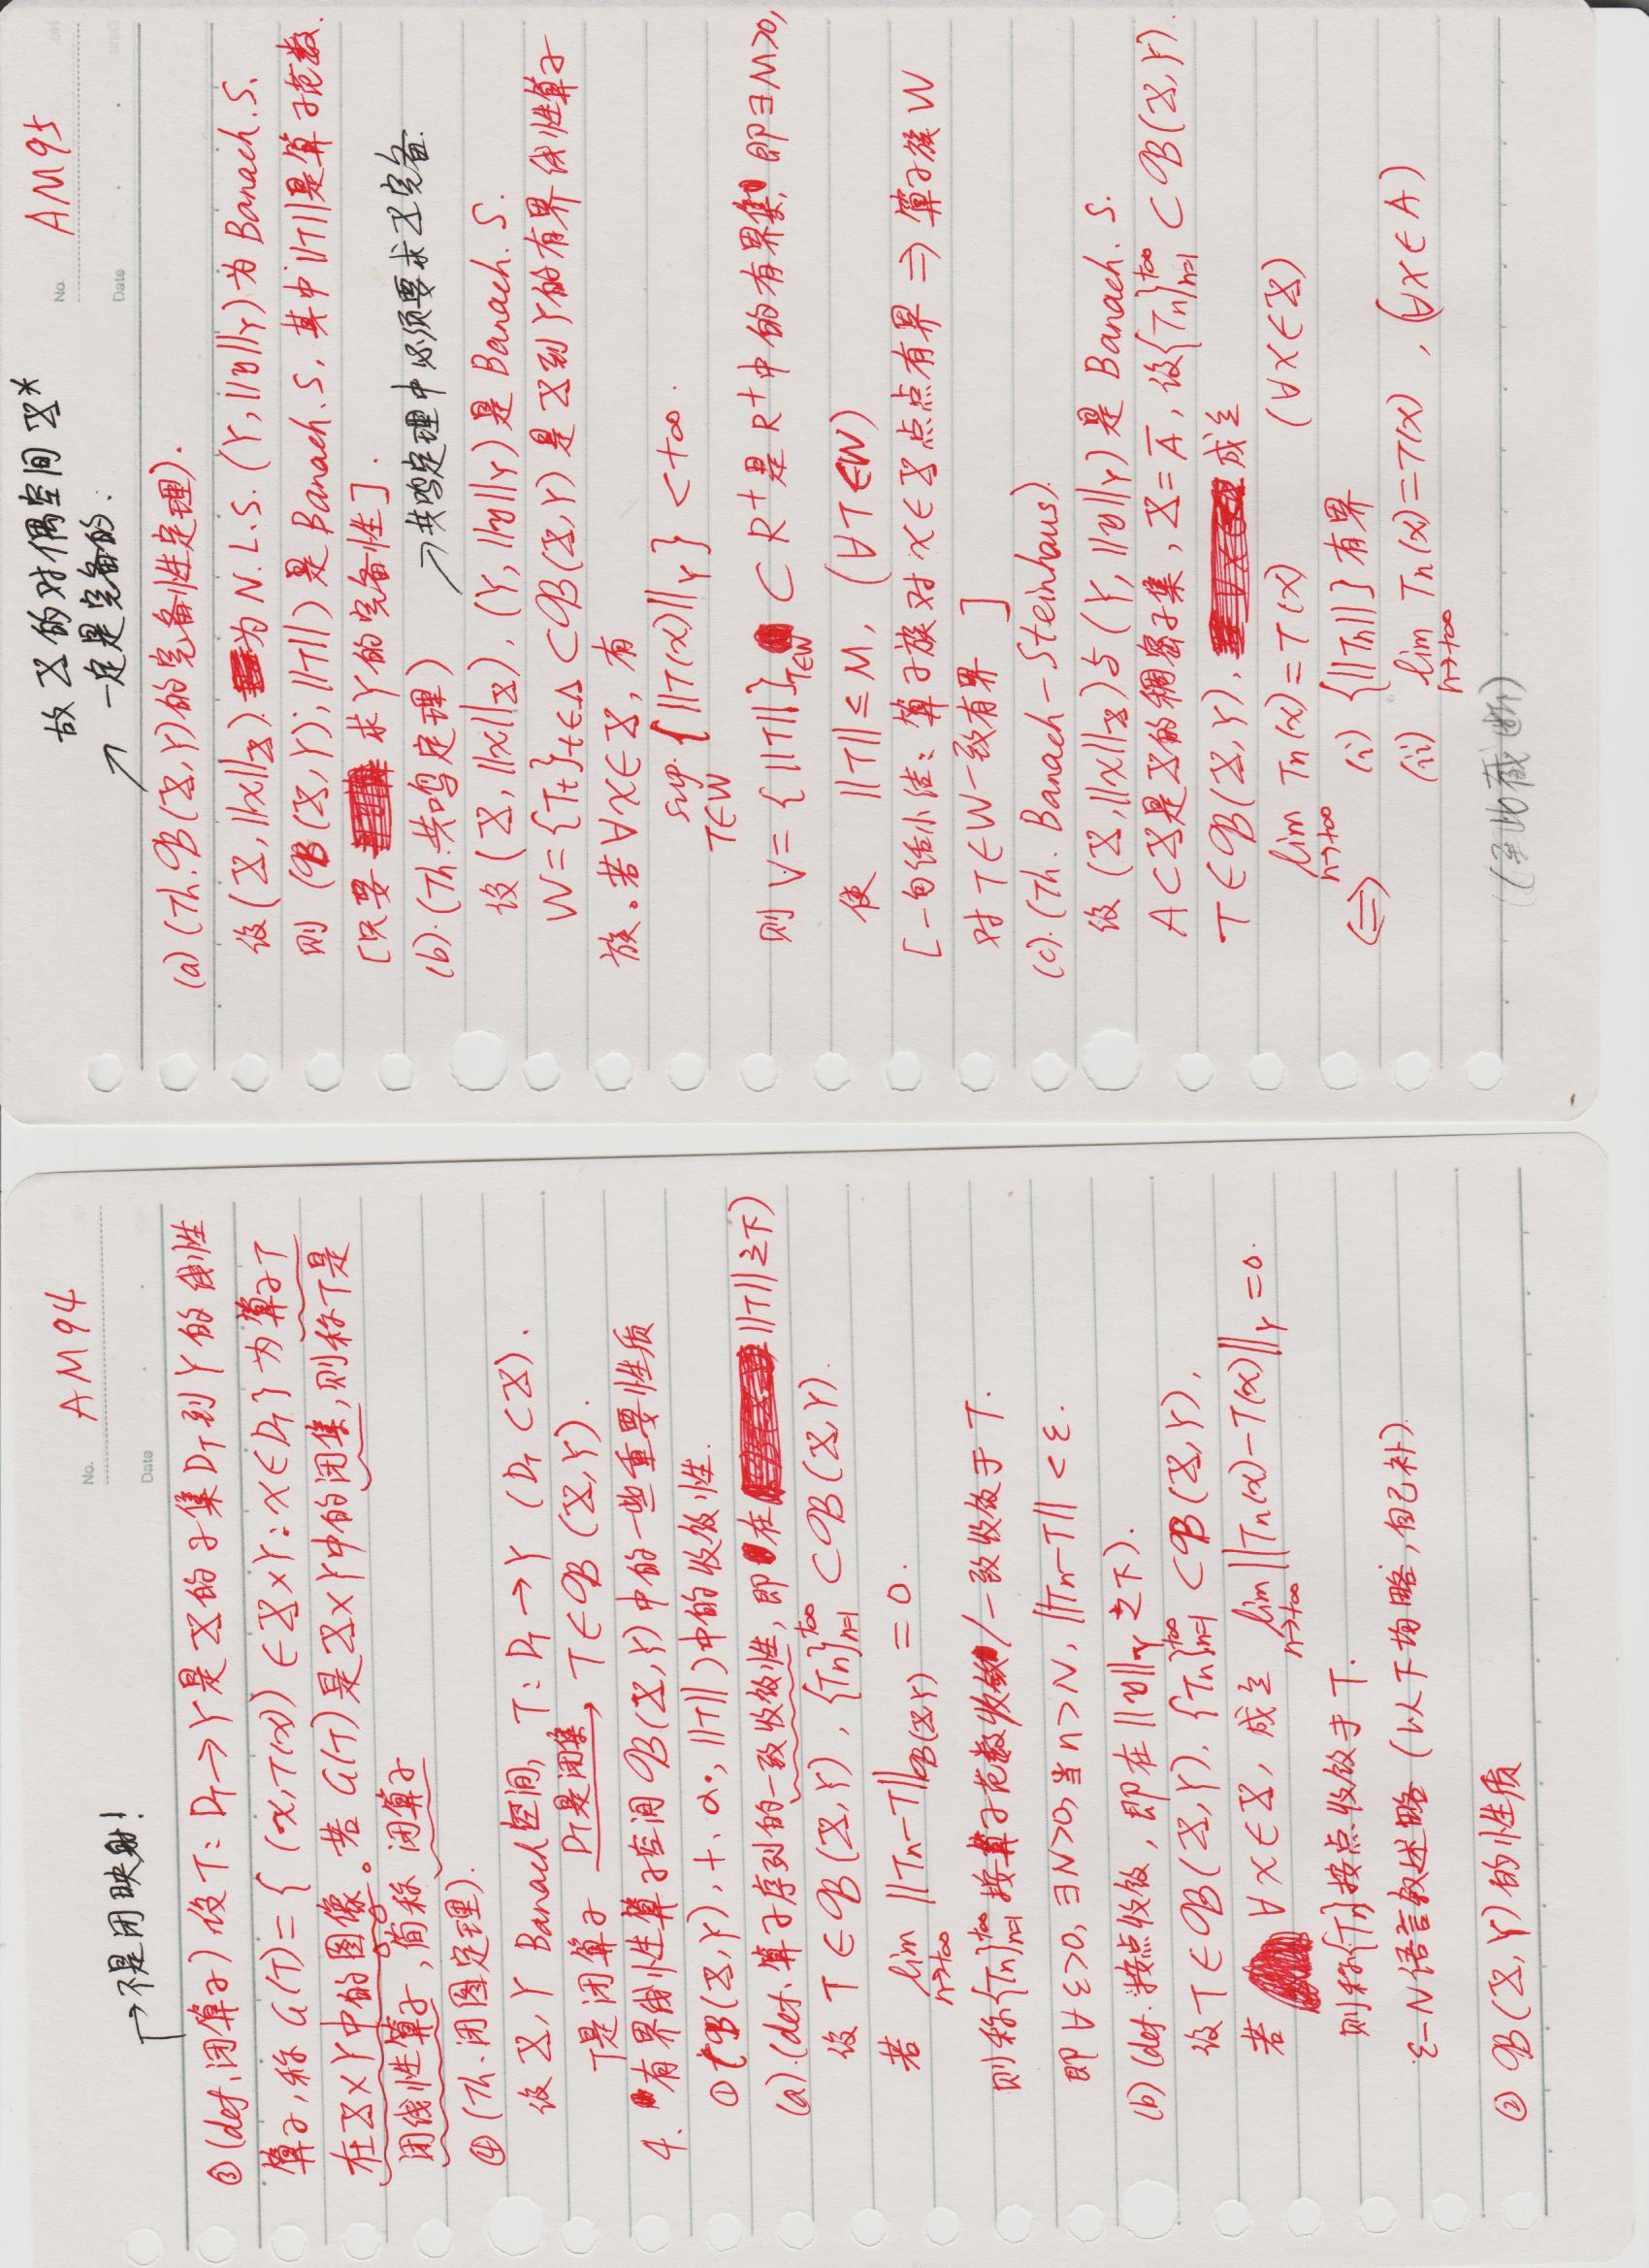 No. AM94
Date
→不是闭映射!
③(def. 闭算子) 设 T: D_T→Y 是 X 的子集 D_T 到 Y 的线性
算子, 称 G(T)={ (x,T(x)) ∈X×Y: x∈D_T } 为算子T
在X×Y中的图像。若 G(T) 是 X×Y 中的闭集, 则称T是
闭线性算子, 简称 闭算子
④ (Th. 闭图定理).
设 X, Y Banach空间, T: D_T→Y (D_T⊂X).
T是闭算子 —D_T是闭集→ T∈B(X,Y).
4. 有界线性算子空间 B(X,Y) 中的一些重要性质
①(B(X,Y), +, α·, ||T||) 中的收敛性.
(a).(def. 算子序列的一致收敛性, 即在 ||T|| 之下)
设 T∈B(X,Y), {Tn}_{n=1}^{+∞} ⊂B(X,Y).
若 lim_{n→+∞} ||Tn-T||_{B(X,Y)} = 0.
则称{Tn}_{n=1}^{+∞} 按算子范数收敛/一致收敛于 T.
即 ∀ε>0, ∃N>0, 当 n>N, ||Tn-T|| < ε.
(b) (def. 按点收敛, 即在 ||y||_Y 之下).
设 T∈B(X,Y). {Tn}_{n=1}^{+∞} ⊂B(X,Y),
若 ∀x∈X, 成立 lim_{n→+∞} ||Tn(x)-T(x)||_Y =0.
则称{Tn}按点收敛于 T.
ε-N 语言叙述略 (以下均略, 自己补).
② B(X,Y) 的性质
No. AM95
Date
故 X 的对偶空间 X*
↗ 一定是完备的.
(a) (Th. B(X,Y) 的完备性定理).
设 (X, ||x||_X). 为 N.L.S. (Y, ||y||_Y) 为 Banach. S.
则 (B(X,Y); ||T||) 是 Banach. S, 其中 ||T|| 是算子范数.
[只要求 Y 的完备性].
(b). (Th.共鸣定理) ↗共鸣定理中必须要求 X 完备.
设 (X, ||x||_X), (Y, ||y||_Y) 是 Banach. S.
W={T_t}_{t∈Λ} ⊂B(X,Y) 是 X 到 Y 的有界线性算子
族。若 ∀x∈X, 有
sup_{T∈W} {||T(x)||_Y} <+∞.
则 V={ ||T|| }_{T∈W} ⊂ R⁺ 是 R⁺ 中的有界集, 即 ∃M>0,
使 ||T|| ≤ M, (∀T∈W)
[一句话小结: 算子族对 x∈X 点点有界 ⇒ 算子族 W
对 T∈W 一致有界 ]
(c). (Th. Banach-Steinhaus).
设 (X, ||x||_X) 与 (Y, ||y||_Y) 是 Banach. S.
A⊂X是X的稠密子集, X=A̅, 设{Tn}_{n=1}^{+∞} ⊂ B(X,Y).
T∈B(X,Y). 成立
lim_{n→+∞} Tn(x)=T(x) (∀x∈X)
⟺ (i) {||Tn||} 有界
(ii) lim_{n→+∞} Tn(x)=T(x), (∀x∈A)
(至此截断)